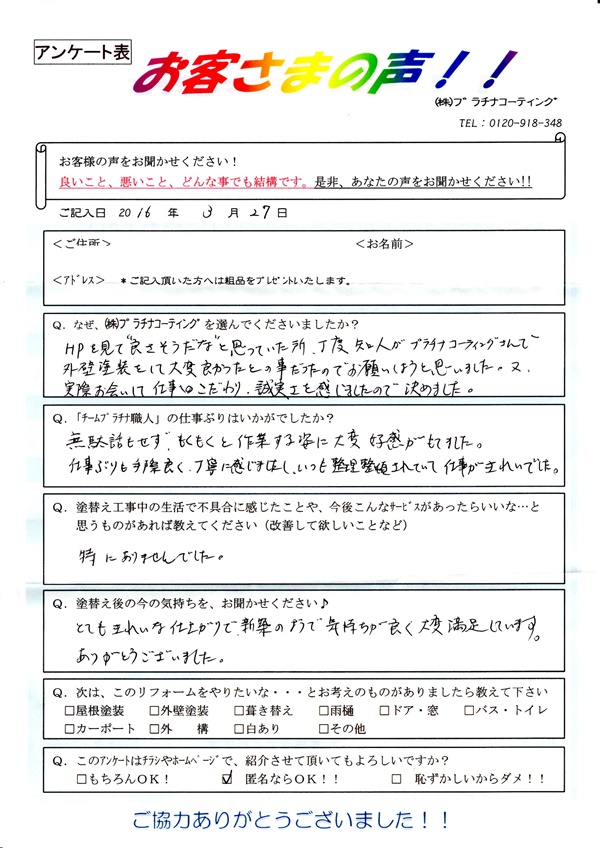 アンケート表
お客さまの声！！
㈱プラチナコーティング
TEL：0120-918-348
お客様の声をお聞かせください！
良いこと、悪いこと、どんな事でも結構です。是非、あなたの声をお聞かせください!!
ご記入日 2016 年 3 月 27 日
＜ご住所＞ ＜お名前＞
＜アドレス＞ ＊ご記入頂いた方へは粗品をプレゼントいたします。
Q．なぜ、㈱プラチナコーティングを選んでくださいましたか？
HPを見て"良さそうだな"と思っていた所、丁度知人がプラチナコーティングさんで
外壁塗装をして大変良かったとの事だったのでお願いしようと思いました。又、
実際お会いして仕事へのこだわり、誠実さを感じましたので決めました。
Q．「チームプラチナ職人」の仕事ぶりはいかがでしたか？
無駄話もせず、もくもくと作業する姿に大変好感がもてました。
仕事ぶりも手際良く、丁寧に感じましたし、いつも整理整頓されていて仕事がきれいでした。
Q．塗替え工事中の生活で不具合に感じたことや、今後こんなサービスがあったらいいな…と
思うものがあれば教えてください（改善して欲しいことなど）
特にありませんでした。
Q．塗替え後の今の気持ちを、お聞かせください♪
とてもきれいな仕上がりで、新築のようで気持ちが良く大変満足しています。
ありがとうございました。
Q．次は、このリフォームをやりたいな・・・とお考えのものがありましたら教えて下さい
□屋根塗装 □外壁塗装 □葺き替え □雨樋 □ドア・窓 □バス・トイレ
□カーポート □外 構 □白あり □その他
Q．このアンケートはチラシやホームページで、紹介させて頂いてもよろしいですか？
□もちろんOK！ ☑ 匿名ならOK！！ □ 恥ずかしいからダメ！！
ご協力ありがとうございました！！